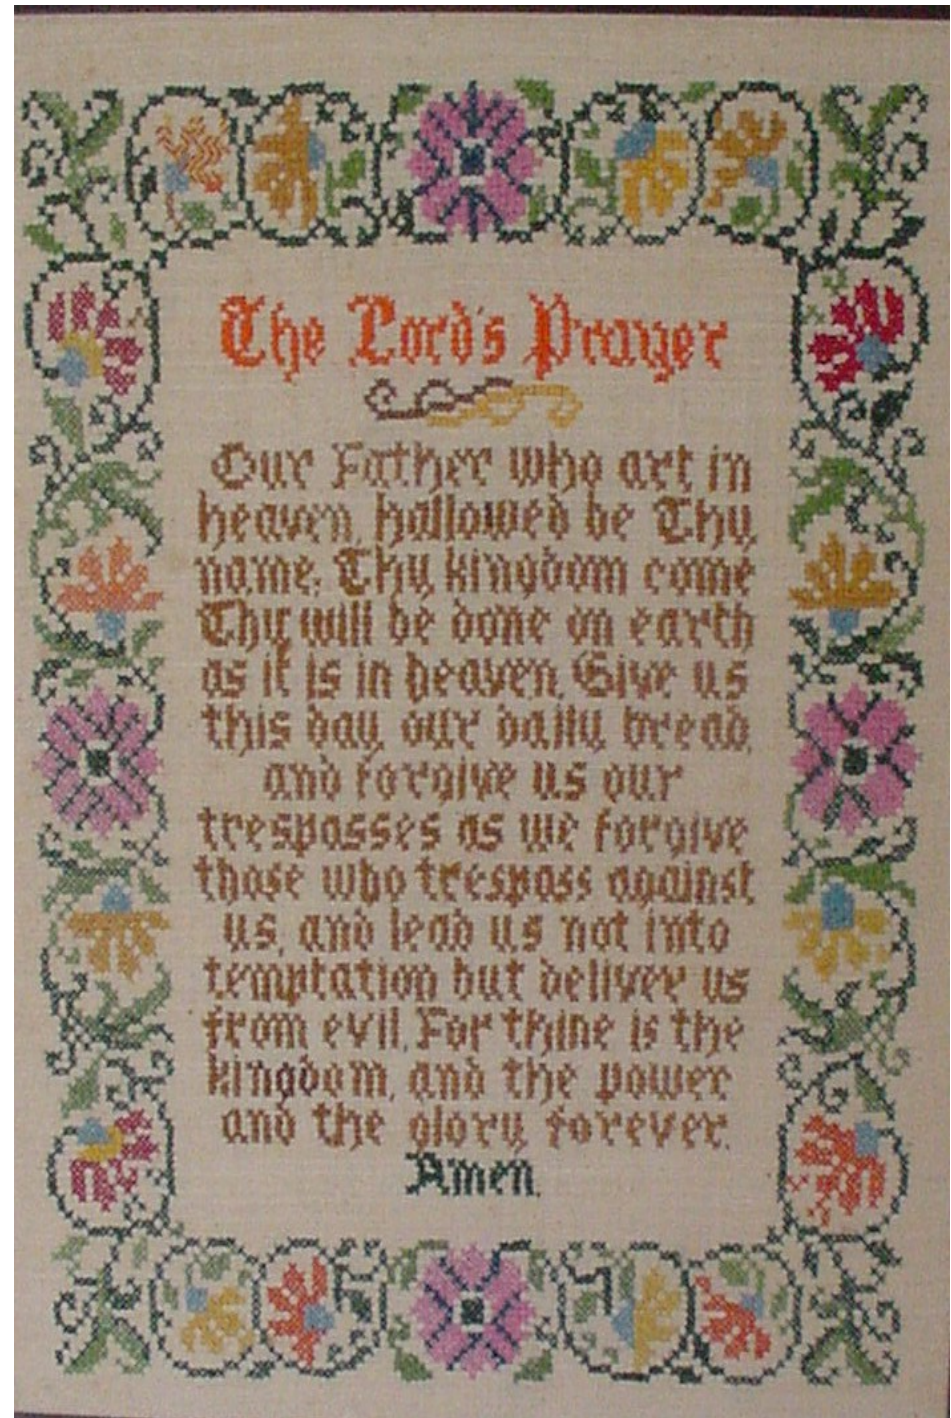 The Lord's Prayer
Our Father who art in
heaven, hallowed be Thy
name; Thy kingdom come
Thy will be done on earth
as it is in heaven. Give us
this day our daily bread,
and forgive us our
trespasses as we forgive
those who trespass against
us, and lead us not into
temptation but deliver us
from evil. For thine is the
kingdom, and the power
and the glory forever.
Amen.